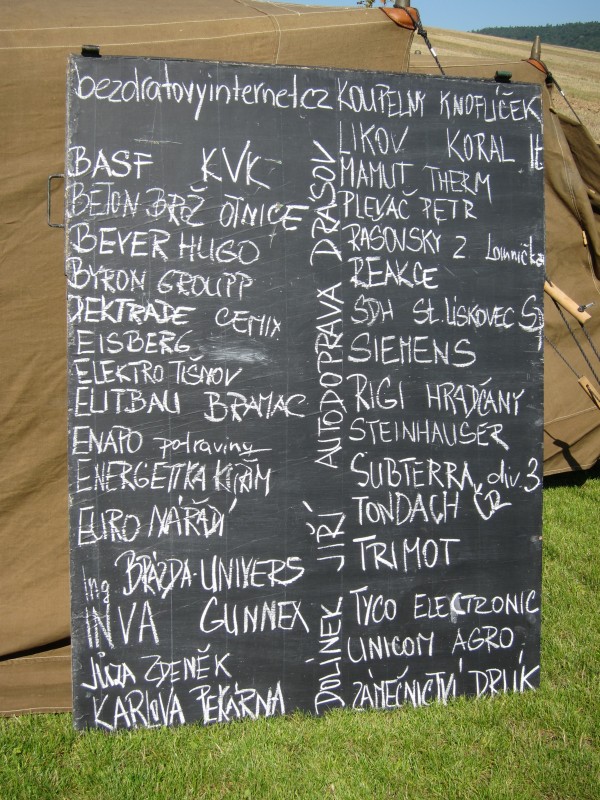 bezdratovyinternet.cz
BASF KVK
BETON BROŽ OTNICE
BEYER HUGO
BYRON GROUPP
DEKTRADE CEMIX
EISBERG
ELEKTRO TIŠNOV
ELITBAU BRAMAC
ENAPO potraviny
ENERGETIKA KUŘIM
EURO NÁŘADÍ
Ing BRÁZDA-UNIVERS
INVA GUNNEX
JÍZA ZDENĚK
KARLOVA PEKÁRNA
DOLÍNEK JIŘÍ AUTODOPRAVA DRÁSOV
KOUPELNY KNOFLÍČEK
LIKOV KORAL It
MAMUT THERM
PLEVAČ PETR
RASOVSKY z Lomnička
REAKCE
SDH St. LÍSKOVEC
SIEMENS
RIGI HRADČANY
STEINHAUSER
SUBTERRA div. 3
TONDACH ČR
TRIMOT
TYCO ELECTRONIC
UNICOM AGRO
ZÁMEČNICTVÍ DRLÍK